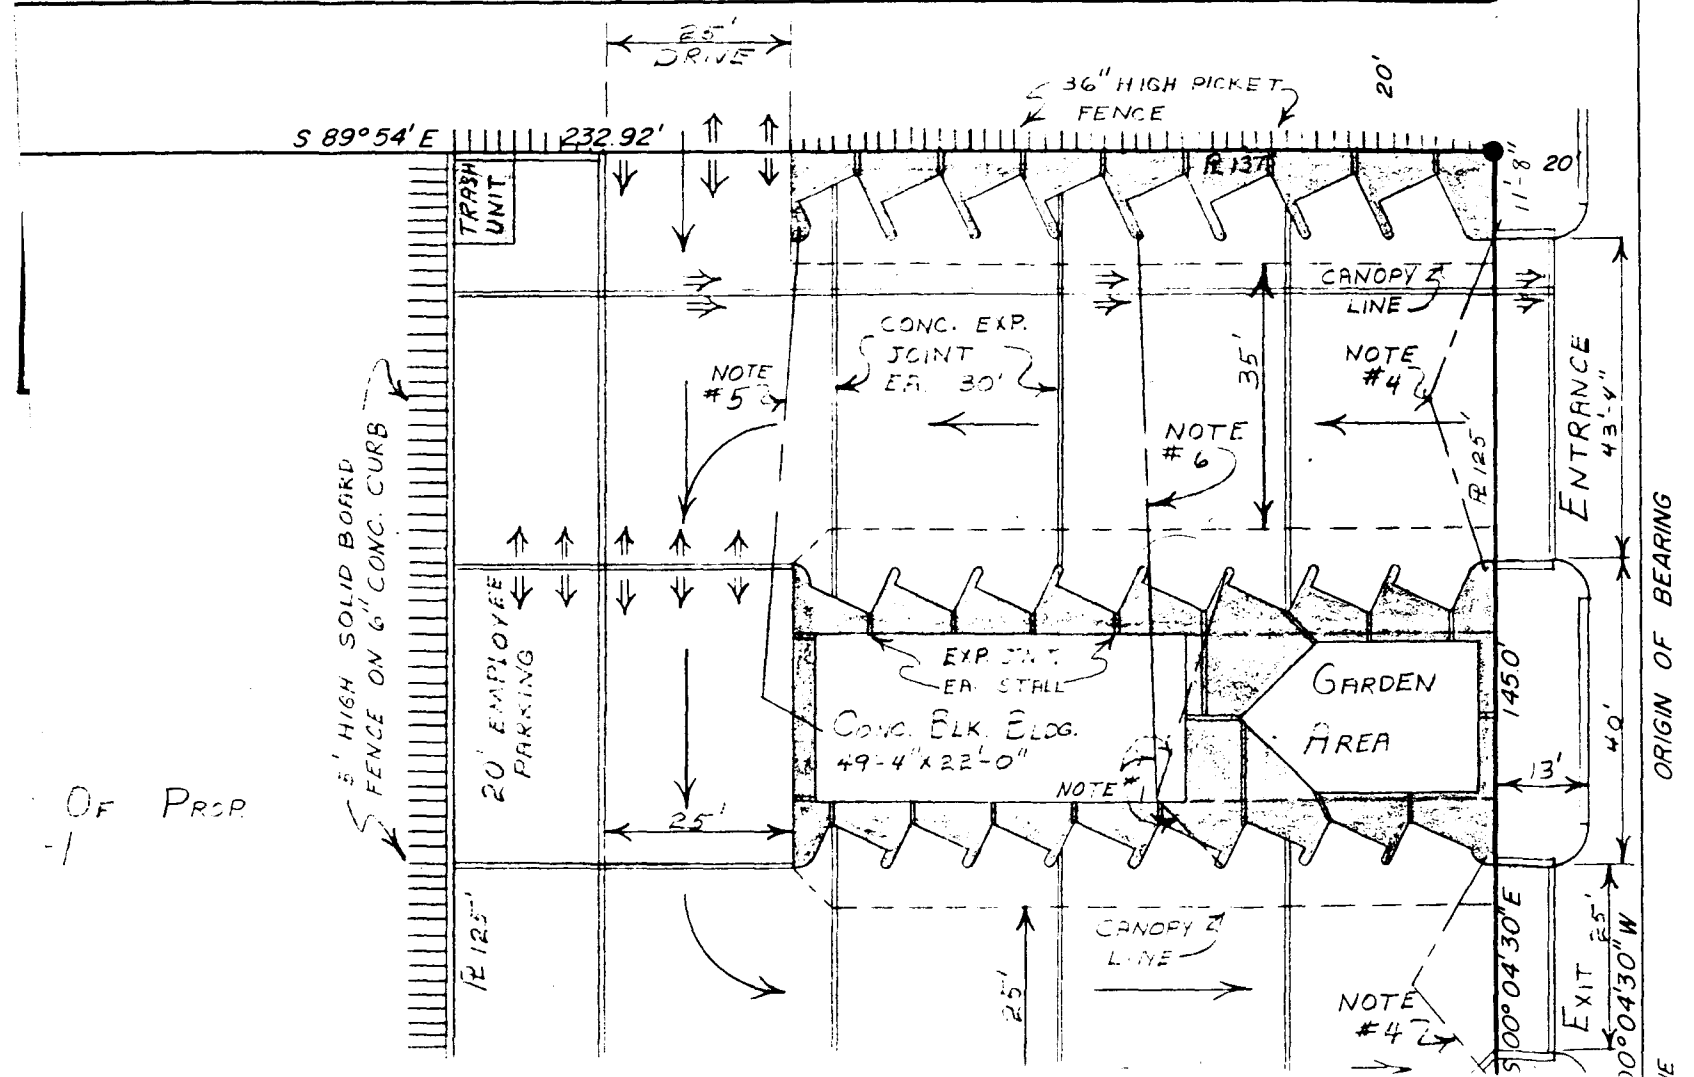 25'
DRIVE
36" HIGH PICKET
FENCE
20'
S 89°54' E
232.92'
TRASH
UNIT
PL 137'
11'-8"
20'
CANOPY
LINE
CONC. EXP.
JOINT
EA. 30'
NOTE
#5
35'
NOTE
#4
NOTE
#6
PL 125'
ENTRANCE
43'-4"
5' HIGH SOLID BOARD
FENCE ON 6" CONC. CURB
20' EMPLOYEE
PARKING
EXP. JNT.
EA. STALL
CONC. BLK. BLDG.
49'-4" X 22'-0"
NOTE #
GARDEN
AREA
145.0'
40'
13'
ORIGIN OF BEARING
OF PROP.
25'
PL 125'
CANOPY
LINE
25'
NOTE
#4
S 00°04'30" E
EXIT 25'
00°04'30" W